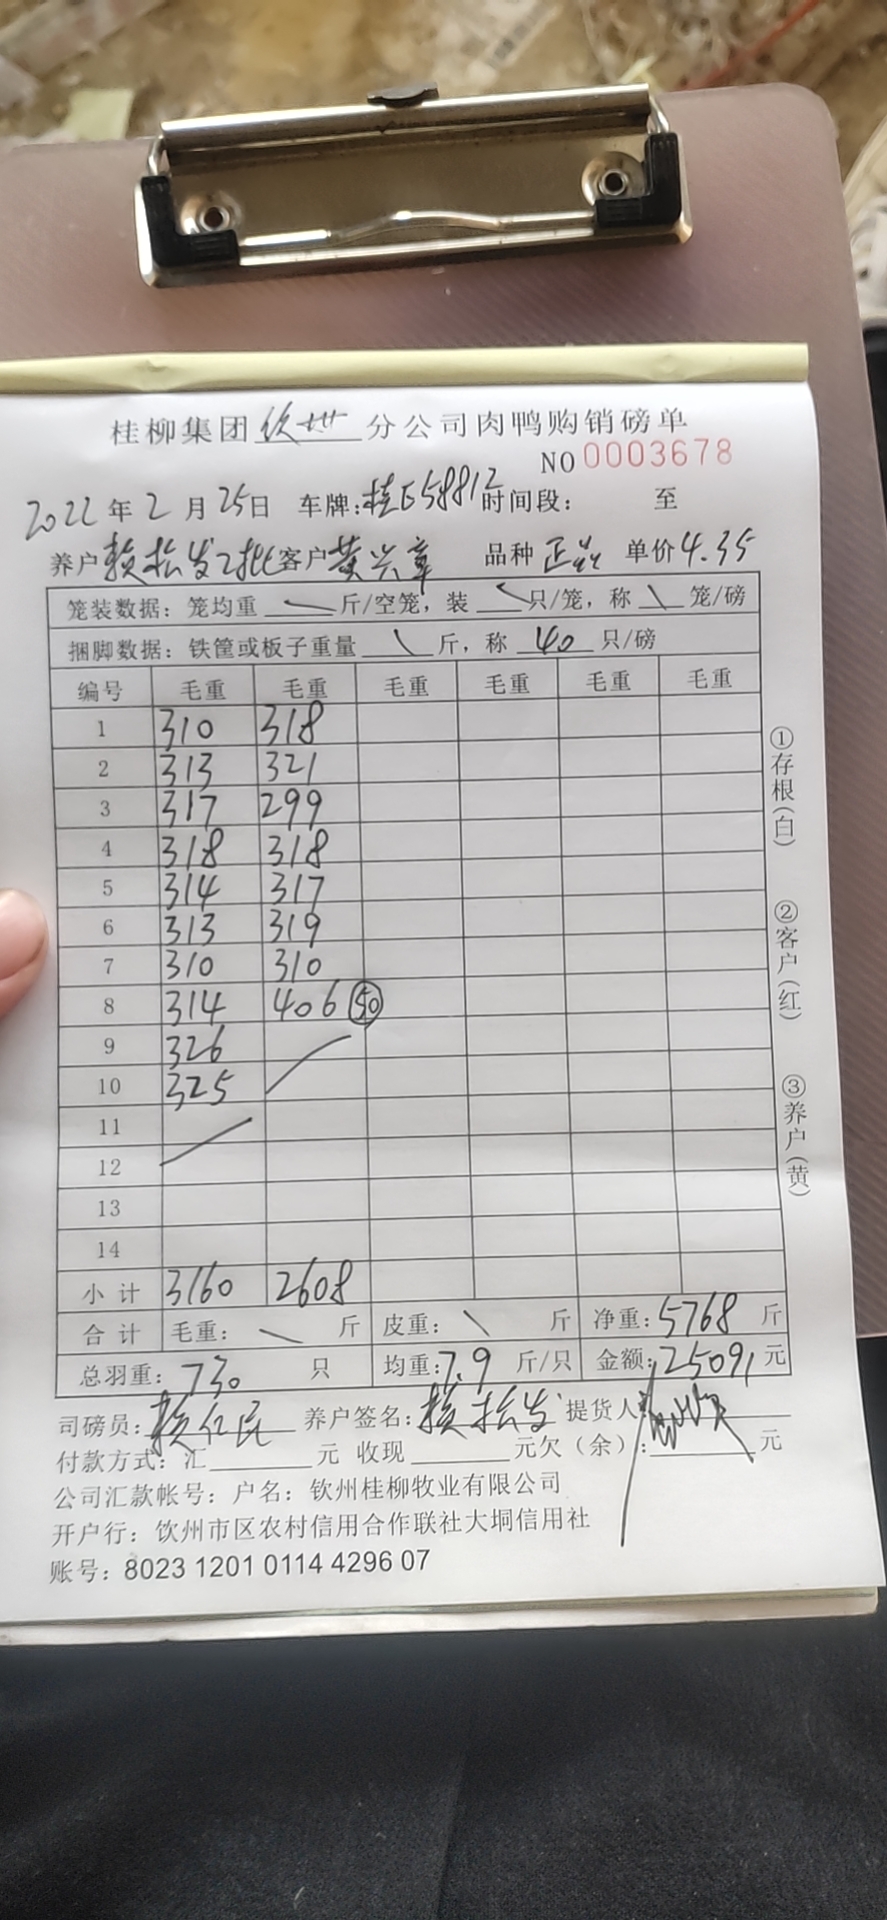 桂柳集团钦州分公司肉鸭购销磅单
NO 0003678
2022年2月25日 车牌:桂E58812 时间段: 至
养户 赖松发2批 客户 黄兴章 品种 正品 单价 4.35
笼装数据: 笼均重 斤/空笼, 装 只/笼, 称 笼/磅
捆脚数据: 铁筐或板子重量 斤, 称 40 只/磅
编号 毛重 毛重 毛重 毛重 毛重 毛重
1 310 318
2 313 321
3 317 299
4 318 318
5 314 317
6 313 319
7 310 310
8 314 406 50
9 326
10 325
11
12
13
14
小计 3160 2608
合计 毛重: 斤 皮重: 斤 净重: 5768 斤
总羽重: 730 只 均重: 7.9 斤/只 金额: 25091 元
司磅员: 赖仁民 养户签名: 赖松发 提货人
付款方式: 汇 元 收现 元 欠(余): 元
公司汇款帐号: 户名: 钦州桂柳牧业有限公司
开户行: 饮州市区农村信用合作联社大垌信用社
账号: 8023 1201 0114 4296 07
①存根(白)
②客户(红)
③养户(黄)